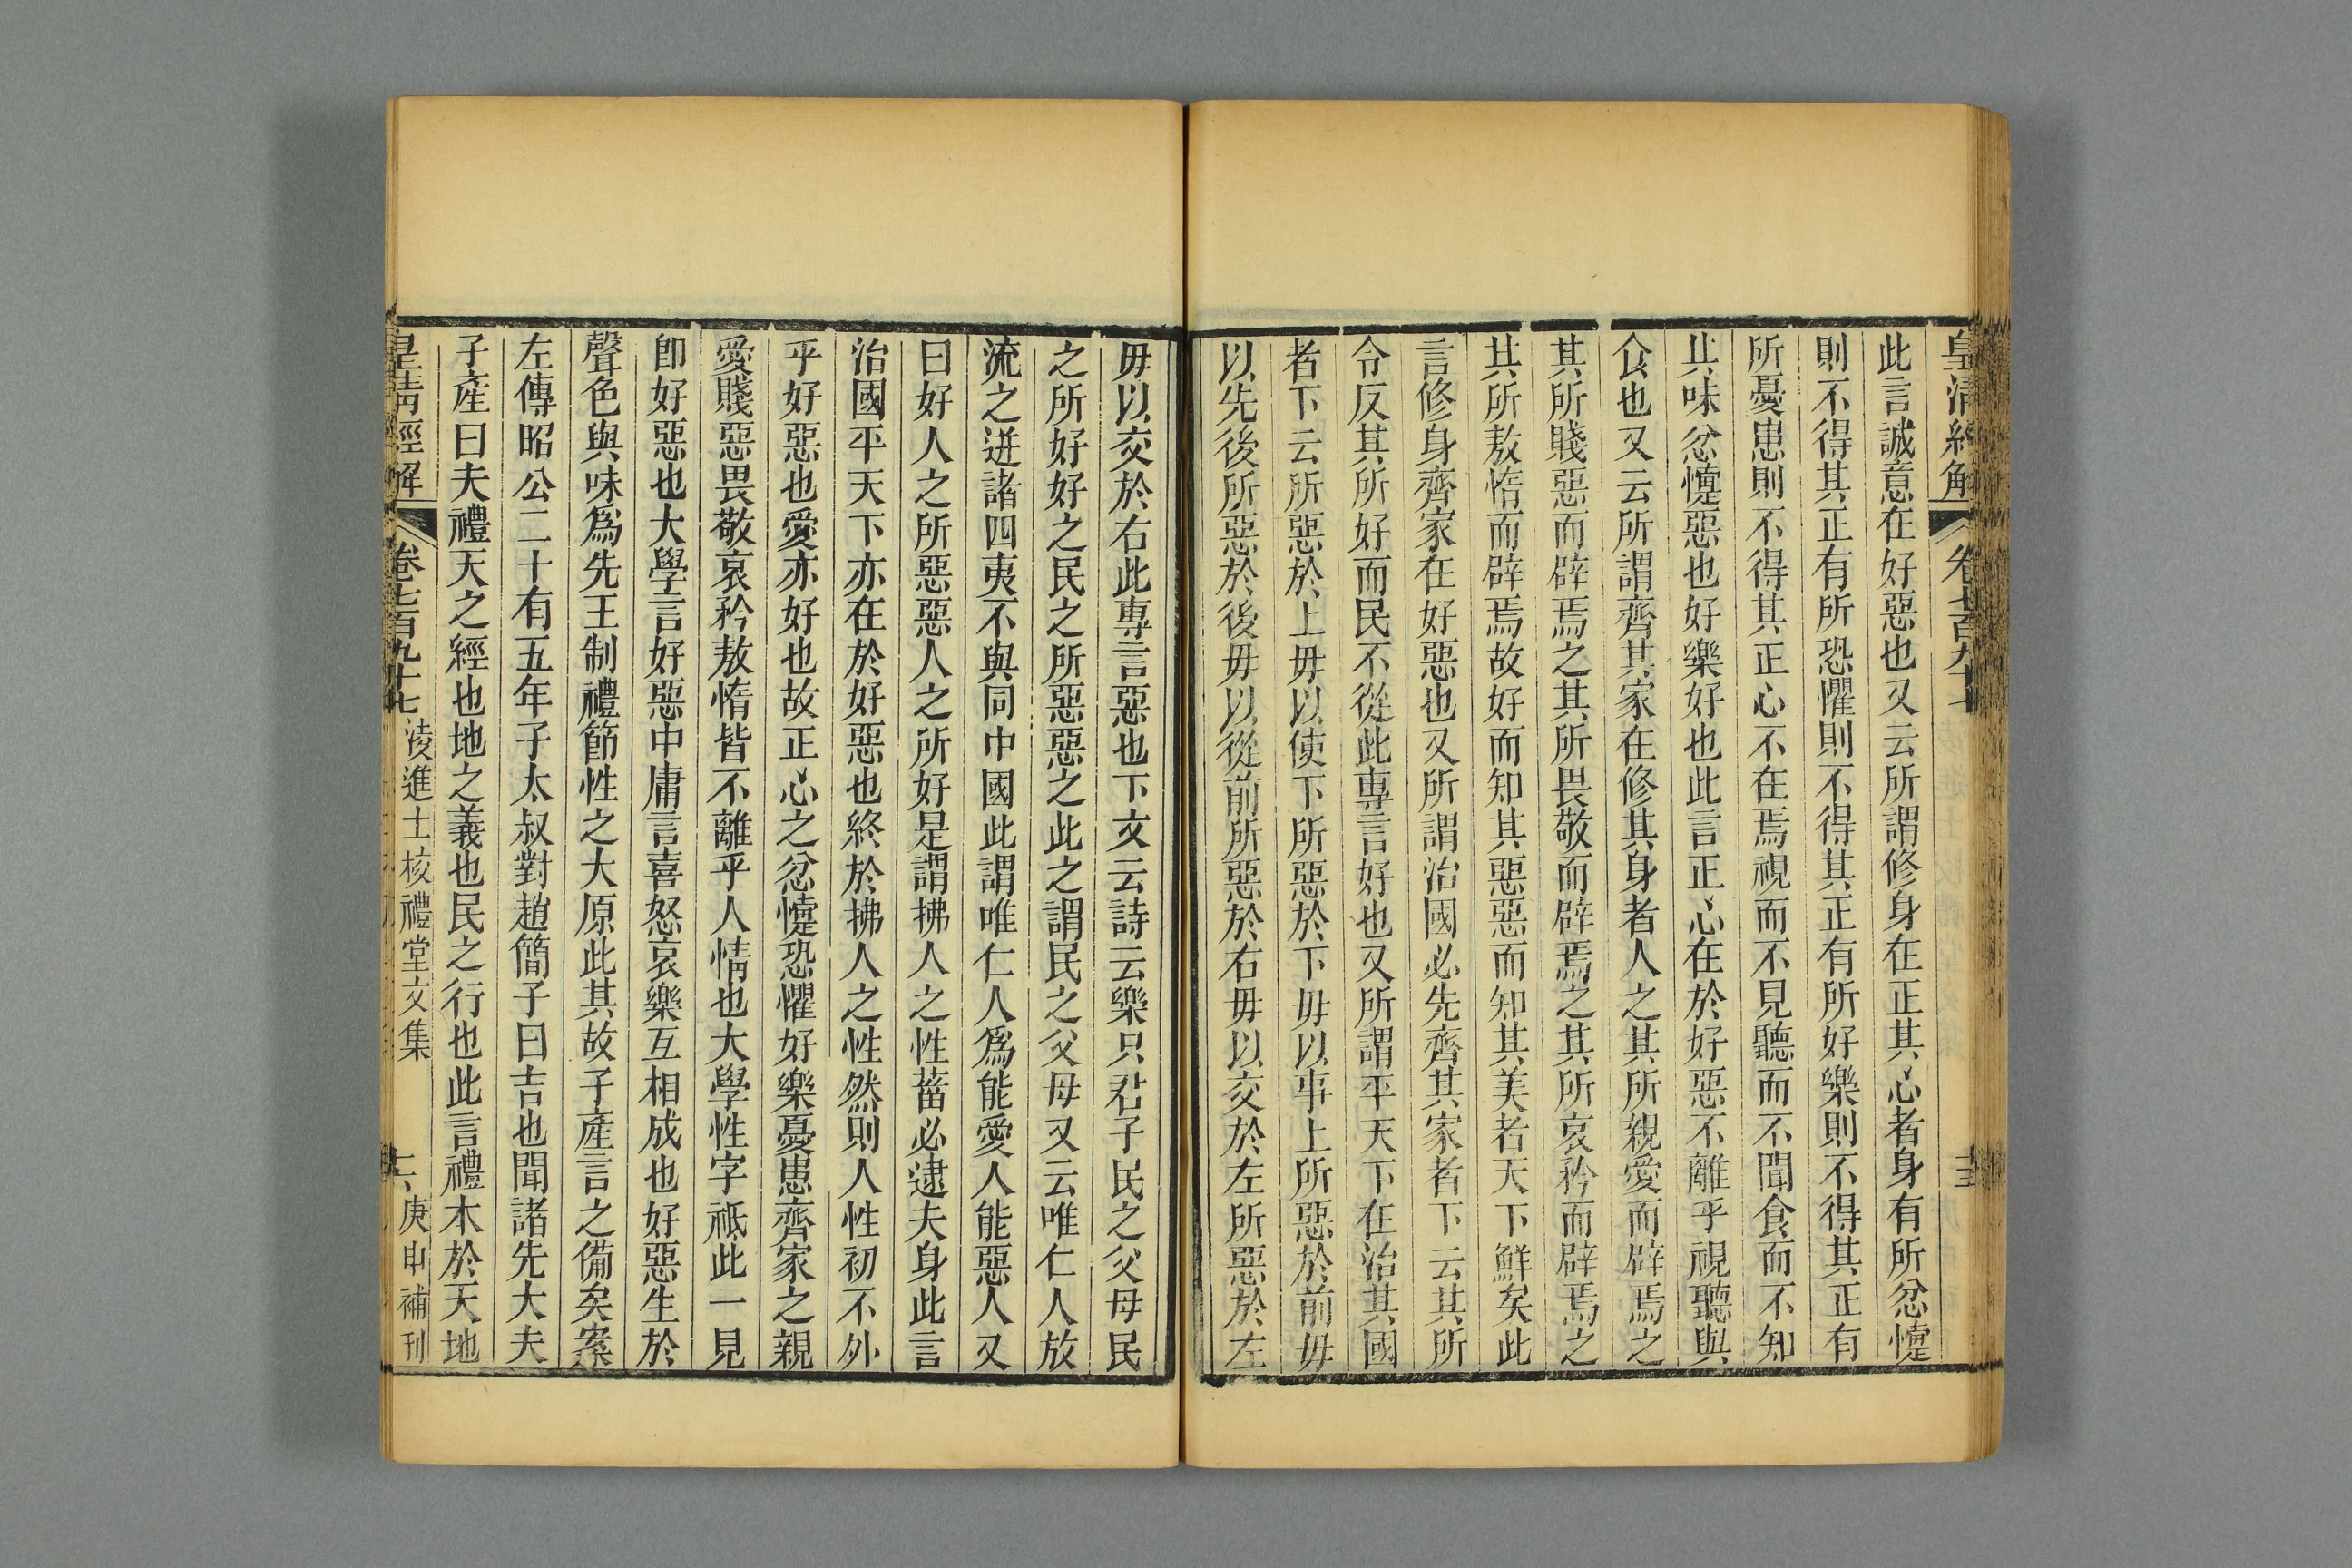 皇清經解 卷七百九十七 十三
此言誠意在好惡也又云所謂修身在正其心者身有所忿懥
則不得其正有所恐懼則不得其正有所好樂則不得其正有
所憂患則不得其正心不在焉視而不見聽而不聞食而不知
其味忿懥惡也好樂好也此言正心在於好惡不離乎視聽與
食也又云所謂齊其家在修其身者人之其所親愛而辟焉之
其所賤惡而辟焉之其所畏敬而辟焉之其所哀矜而辟焉之
其所敖惰而辟焉故好而知其惡惡而知其美者天下鮮矣此
言修身齊家在好惡也又所謂治國必先齊其家者下云其所
令反其所好而民不從此專言好也又所謂平天下在治其國
者下云所惡於上毋以使下所惡於下毋以事上所惡於前毋
以先後所惡於後毋以從前所惡於右毋以交於左所惡於左
毋以交於右此專言惡也下文云詩云樂只君子民之父母民
之所好好之民之所惡惡之此之謂民之父母又云唯仁人放
流之迸諸四夷不與同中國此謂唯仁人爲能愛人能惡人又
曰好人之所惡惡人之所好是謂拂人之性菑必逮夫身此言
治國平天下亦在於好惡也終於拂人之性然則人性初不外
乎好惡也愛亦好也故正心之忿懥恐懼好樂憂患齊家之親
愛賤惡畏敬哀矜敖惰皆不離乎人情也大學性字祗此一見
卽好惡也大學言好惡中庸言喜怒哀樂互相成也好惡生於
聲色與味爲先王制禮節性之大原此其故子產言之備矣案
左傳昭公二十有五年子太叔對趙簡子曰吉也聞諸先大夫
子產曰夫禮天之經也地之義也民之行也此言禮本於天地
皇清經解 卷七百九十七 淩進士校禮堂文集 庚申補刊